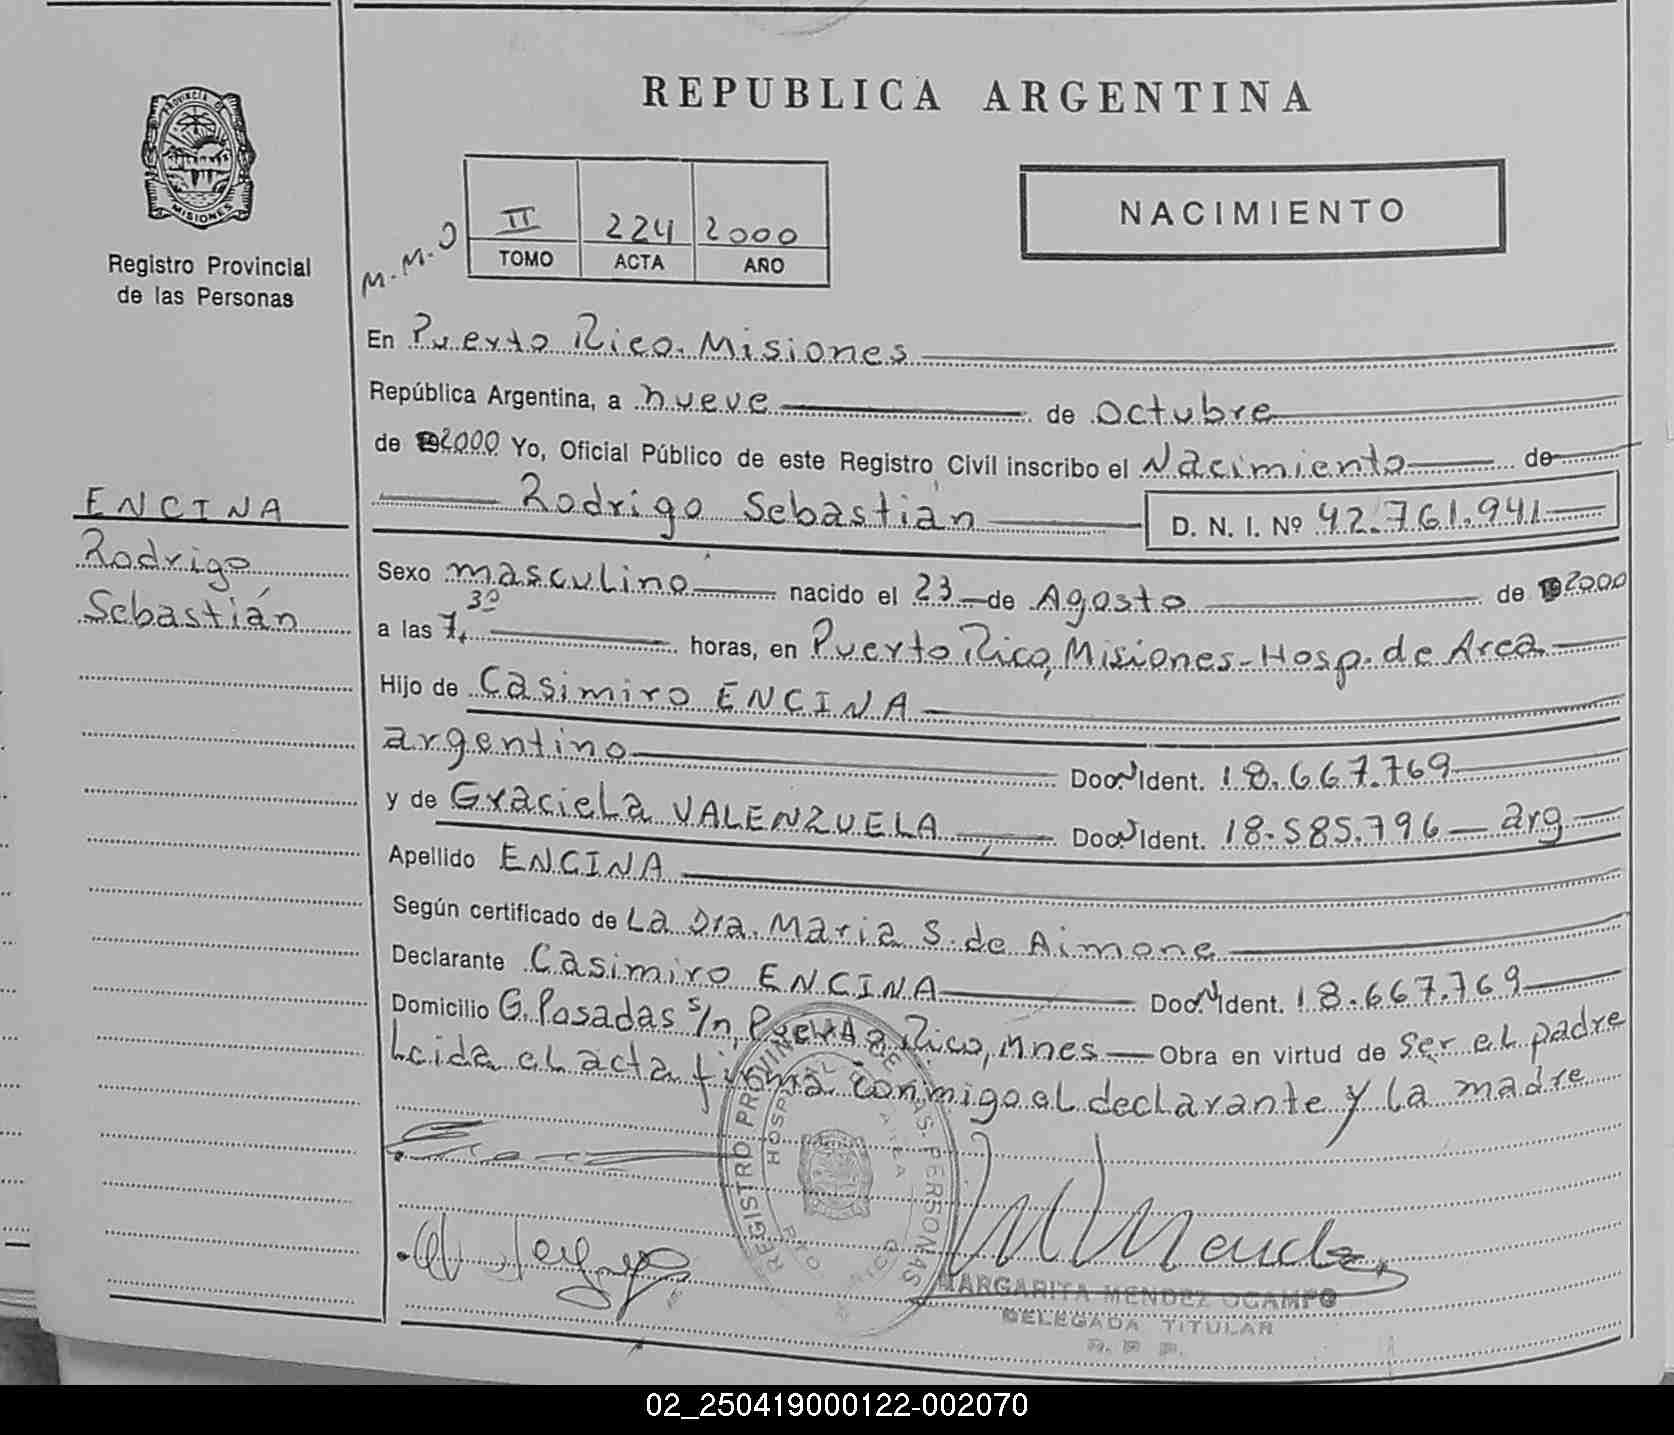 REPUBLICA ARGENTINA
PROVINCIA D
MISIONES
Registro Provincial
de las Personas
M.M.O
II 224 2000
TOMO ACTA AÑO
NACIMIENTO
En Puerto Rico. Misiones
República Argentina, a nueve de octubre
de 2000 Yo, Oficial Público de este Registro Civil inscribo el Nacimiento de
Rodrigo Sebastián D. N. I. Nº 42.761.941
ENCINA
Rodrigo
Sebastián
Sexo masculino nacido el 23 de Agosto de 2000
a las 7,30 horas, en Puerto Rico, Misiones-Hosp. de Area
Hijo de Casimiro ENCINA
argentino Doc. N Ident. 18.667.769
y de Graciela VALENZUELA Doc. N Ident. 18.585.796 arg
Apellido ENCINA
Según certificado de La Dra. Maria S. de Aimone
Declarante Casimiro ENCINA Doc. N Ident. 18.667.769
Domicilio G. Posadas s/n, Puerto Rico, Mnes Obra en virtud de ser el padre
Leida el acta firma conmigo el declarante y la madre
REGISTRO PROVIN DE LAS PERSONAS
HOSP AREA
MARGARITA MENDEZ OCAMPO
DELEGADA TITULAR
R. P. P.
02_250419000122-002070